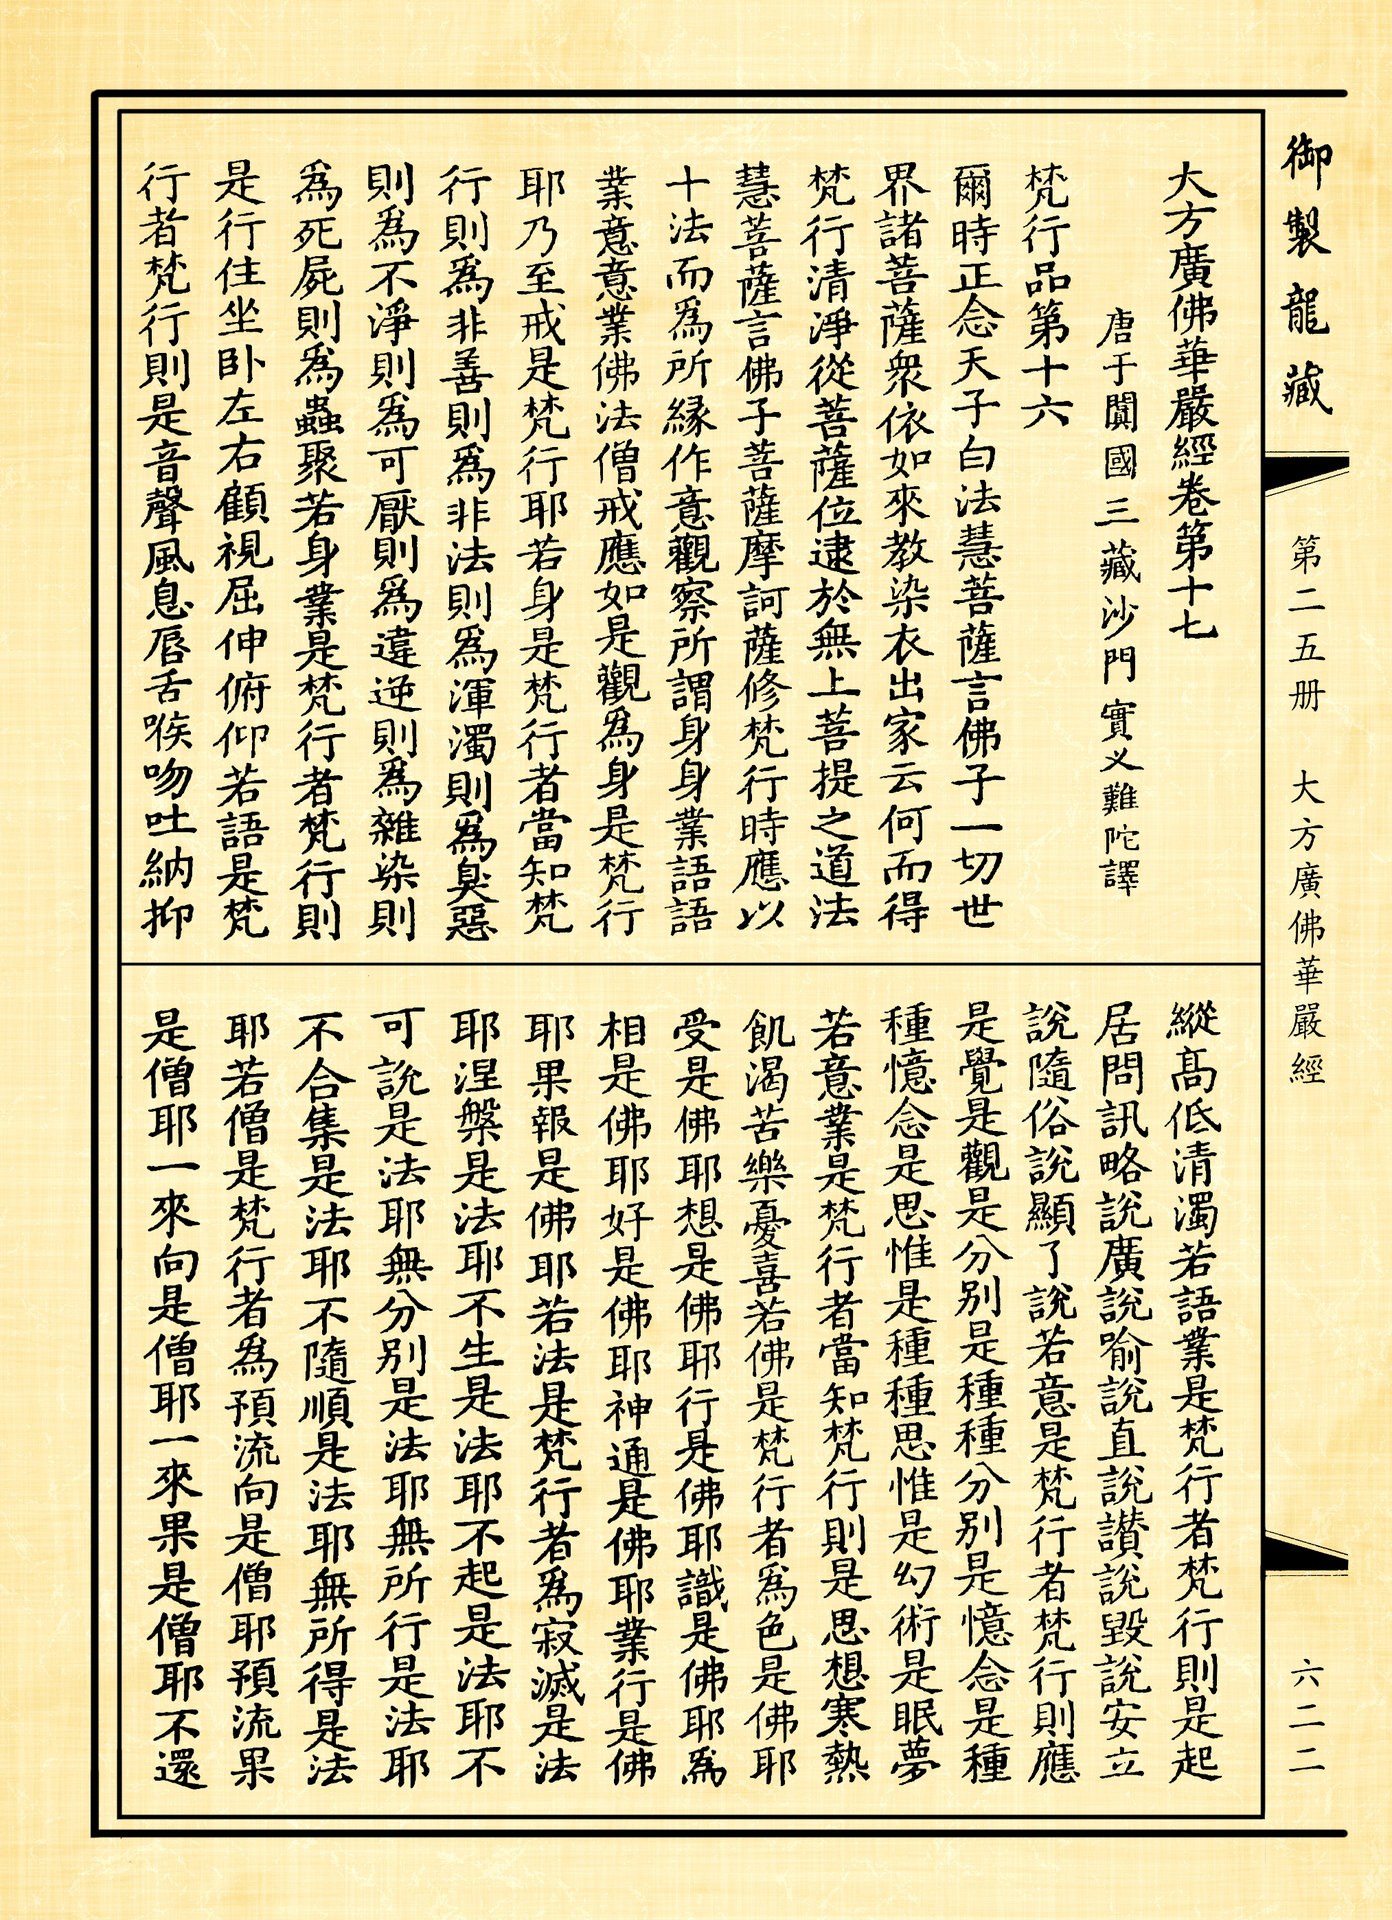 御製龍藏
第二五册　大方廣佛華嚴經
六二二
大方廣佛華嚴經卷第十七
唐于闐國三藏沙門實叉難陀譯
梵行品第十六
爾時正念天子白法慧菩薩言佛子一切世
界諸菩薩衆依如來教染衣出家云何而得
梵行清淨從菩薩位逮於無上菩提之道法
慧菩薩言佛子菩薩摩訶薩修梵行時應以
十法而爲所緣作意觀察所謂身身業語語
業意意業佛法僧戒應如是觀爲身是梵行
耶乃至戒是梵行耶若身是梵行者當知梵
行則爲非善則爲非法則爲渾濁則爲臭惡
則爲不淨則爲可厭則爲違逆則爲雜染則
爲死屍則爲蟲聚若身業是梵行者梵行則
是行住坐臥左右顧視屈伸俯仰若語是梵
行者梵行則是音聲風息脣舌喉吻吐納抑
縱高低清濁若語業是梵行者梵行則是起
居問訊略說廣說喻說直說讚說毀說安立
說隨俗說顯了說若意是梵行者梵行則應
是覺是觀是分別是種種分別是憶念是種
種憶念是思惟是種種思惟是幻術是眠夢
若意業是梵行者當知梵行則是思想寒熱
飢渴苦樂憂喜若佛是梵行者爲色是佛耶
受是佛耶想是佛耶行是佛耶識是佛耶爲
相是佛耶好是佛耶神通是佛耶業行是佛
耶果報是佛耶若法是梵行者爲寂滅是法
耶涅槃是法耶不生是法耶不起是法耶不
可說是法耶無分別是法耶無所行是法耶
不合集是法耶不隨順是法耶無所得是法
耶若僧是梵行者爲預流向是僧耶預流果
是僧耶一來向是僧耶一來果是僧耶不還